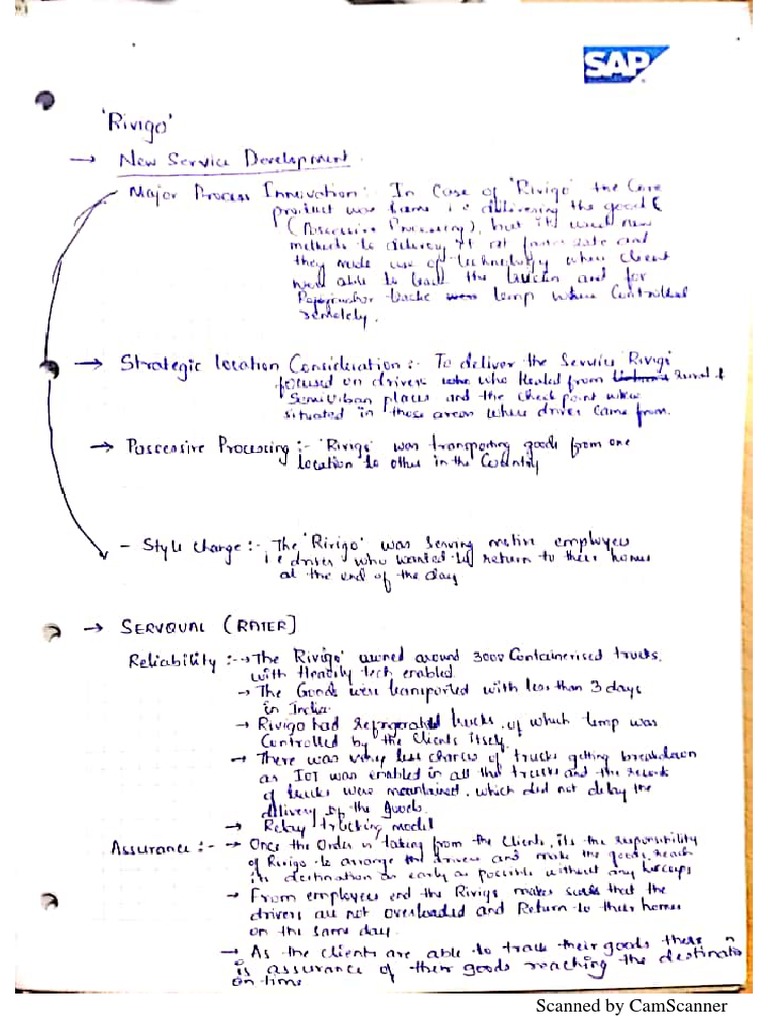 SAP
'Rivigo'
→ New Service Development.
Major Process Innovation:- In Case of 'Rivigo' the Core
product was same i.e delivering the goods
(Possessive Processing), but its used new
methods to delivery it at faster rate and
they made use of technology where client
were able to track the trucks and for
trucks temp where controlled
remotely.
→ Strategic location Consideration:- To deliver the Service Rivigo
focused on drivers who who Healed from rural &
Semiurban places and the check point where
situated in those areas where driver came from.
→ Possessive Processing:- 'Rivigo' was transporting goods from one
location to other in the Country
- Style change:- The 'Rivigo' was serving native employees
i.e driver who wanted to return to their homes
at the end of the day
→ SERVQUAL (RATER)
Reliability:- → The Rivigo' owned around 3000 Containerised trucks,
with Heavily tech enabled.
→ The Goods were transported with less than 3 days
in India.
→ Rivigo had refrigerated trucks, of which temp was
Controlled by the Clients itself.
→ There was very less chances of trucks getting breakdown
as IOT was enabled in all the trucks and the records
of trucks were mountained, which did not delay the
delivery of the goods.
→ Relay trucking model
Assurance:- → Once the Order is taking from the Clients, its the responsibility
of Rivigo to arrange the drivers and make the goods reach
its destination as early as possible without any hiccups
→ From employees end the Rivigo makes sures that the
drivers are not overloaded and Return to their homes
on the same day.
→ As the clients are able to track their goods there
is assurance of their goods reaching the destination
on time
Scanned by CamScanner